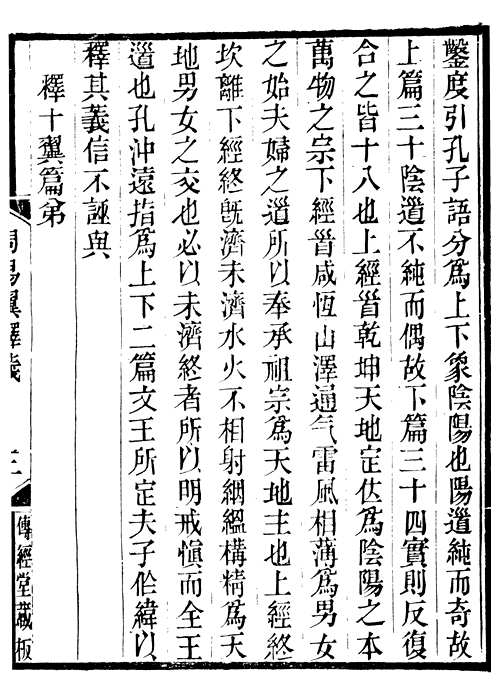 鑿度引孔子語分爲上下象陰陽也陽道純而奇故
上篇三十陰道不純而偶故下篇三十四實則反復
合之皆十八也上經首乾坤天地定位爲陰陽之本
萬物之宗下經首咸恆山澤通气雷風相薄爲男女
之始夫婦之道所以奉承祖宗爲天地主也上經終
坎離下經終旣濟未濟水火不相射絪縕構精爲天
地男女之交也必以未濟終者所以明戒愼而全王
道也孔沖遠指爲上下二篇文王所定夫子作緯以
釋其義信不誣與
釋十翼篇弟
周易翼釋義
三
傳經堂藏板